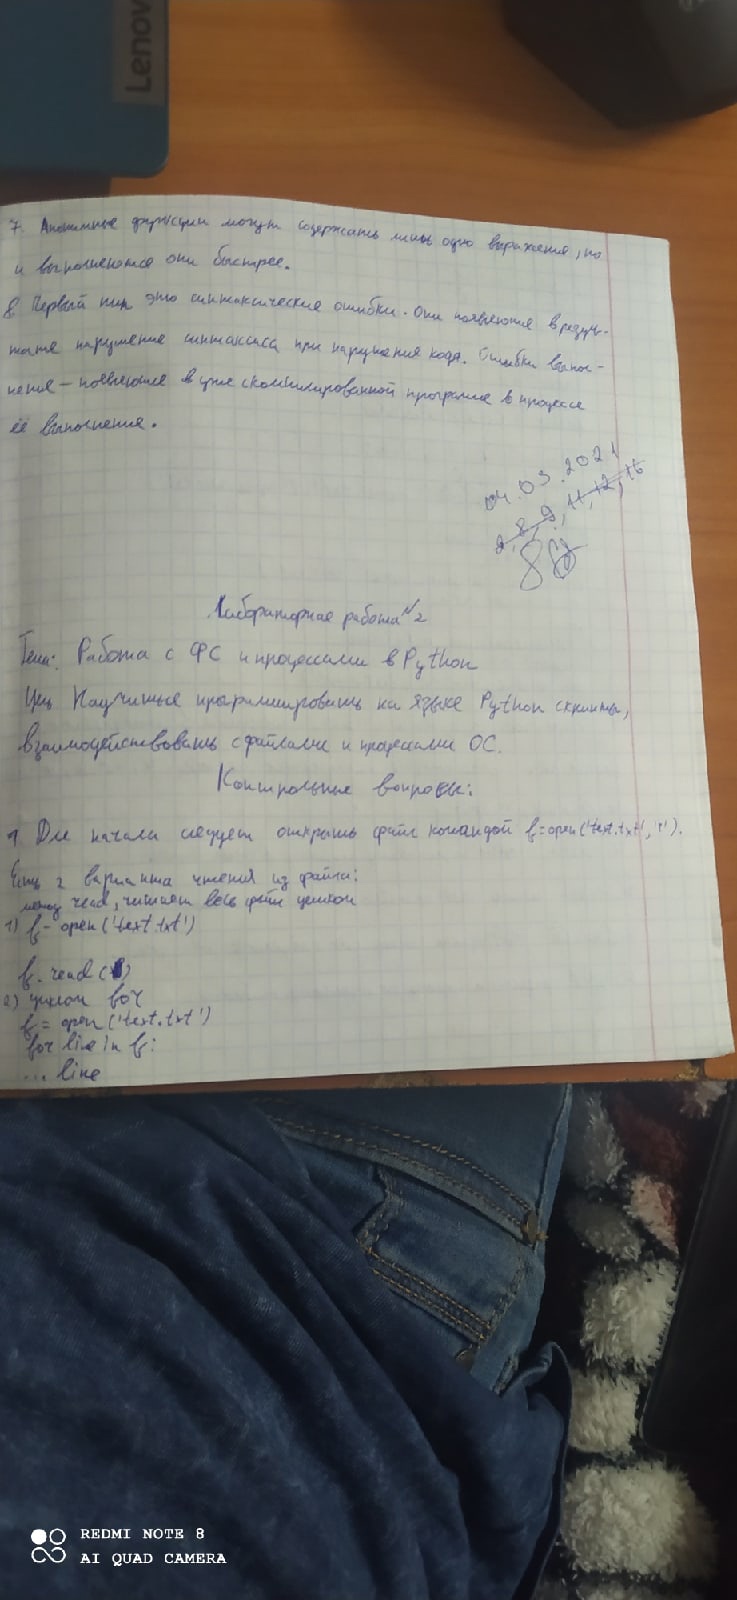 Lenov
7. Анонимные функции могут содержать лишь одно выражение, но
и выполняются они быстрее.
8. Первый тип это синтаксические ошибки. Они появляются в резуль-
тате нарушение синтаксиса при нарушения кода. Ошибки выпол-
нения – появляющие в уже скомпилированной программе в процессе
её выполнения.
04.03.2021
2, 8, 9, 11, 12, 16
Лабораторная работа №2
Тема: Работа с ФС и процессами в Python
Цель Научиться программировать на языке Python скрипты,
взаимодействовать с файлами и процессами ОС.
Контрольные вопросы:
1 Для начала следует открыть файл командой f=open('text.txt', 'r').
Есть 2 варианта чтения из файла:
метод read, читает весь файл целиком
1) f = open('text.txt')
f. read()
2) циклом for
f = open('text.txt')
for line in f:
... line
REDMI NOTE 8
AI QUAD CAMERA